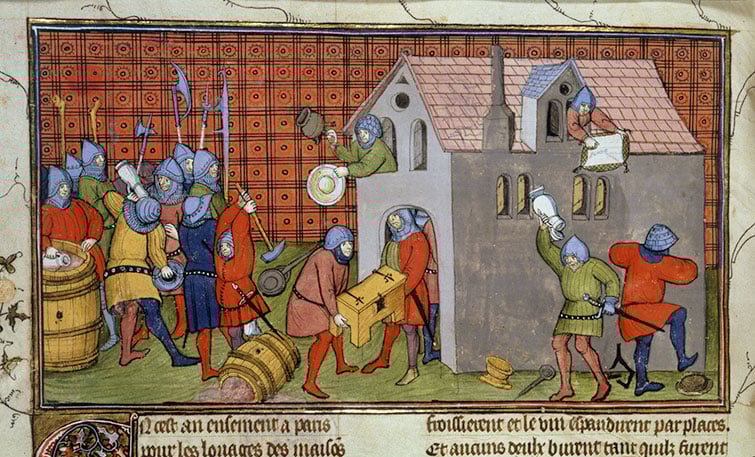 En cest an ensement a paris
pour les louages des maisõs
froissierent et le vin espandirent par places.
Et aucuns deulx burent tant quilz furent